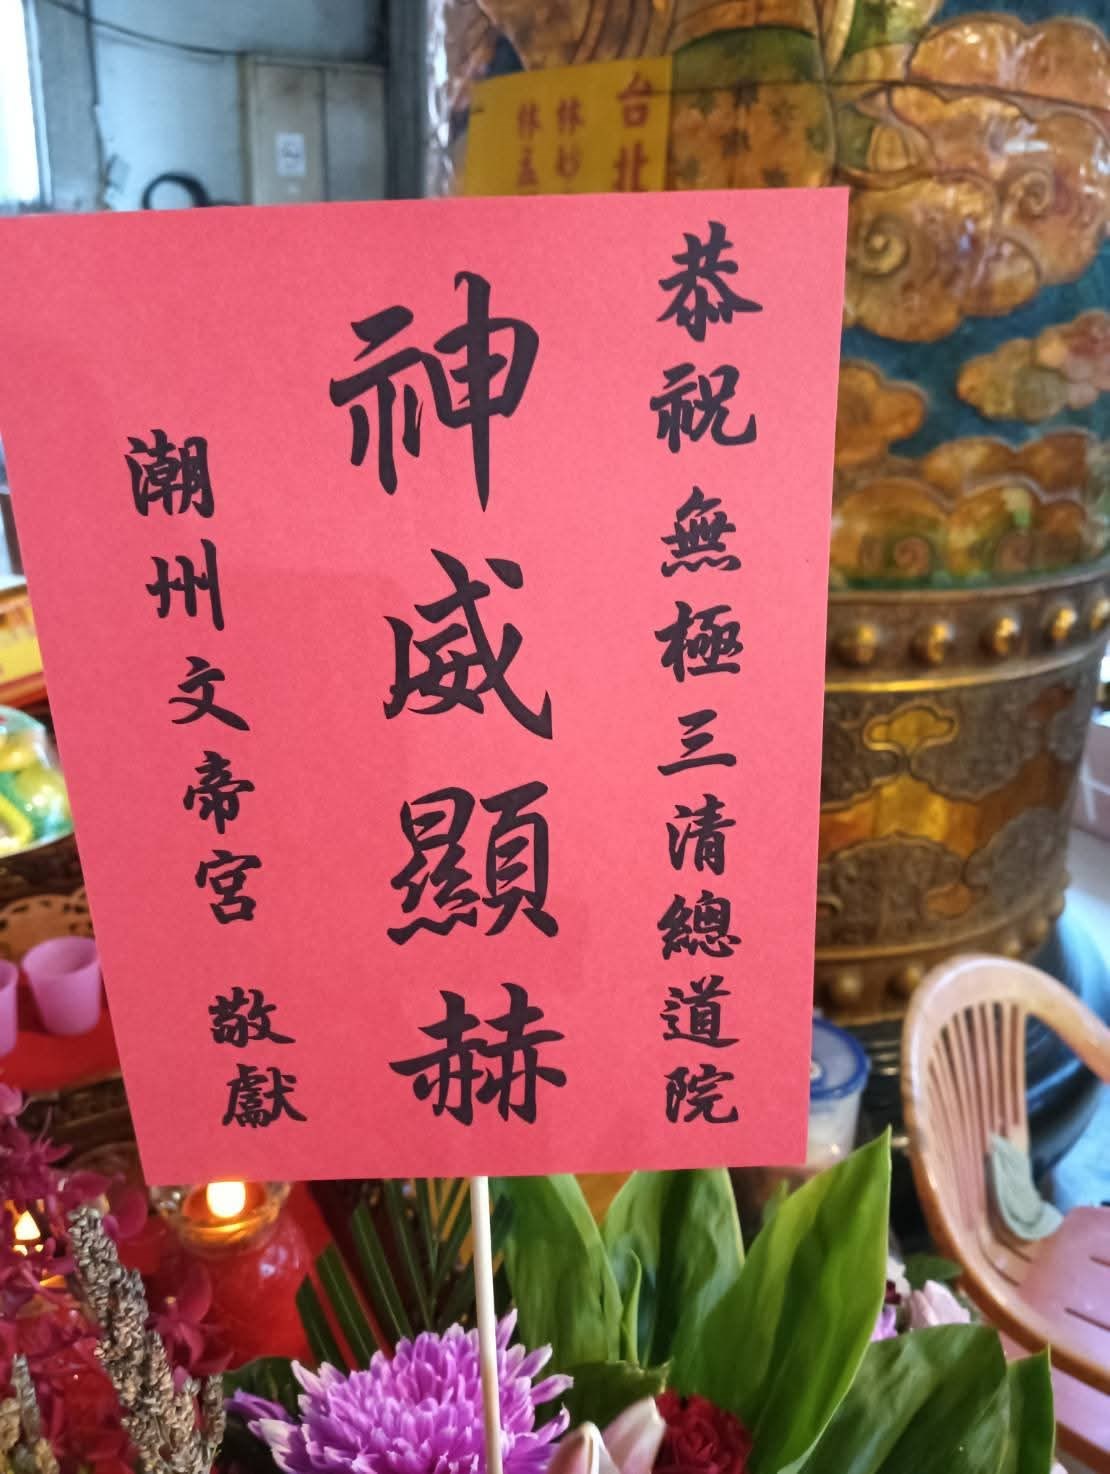 恭祝無極三清總道院
神威顯赫
潮州文帝宮 敬獻
台北